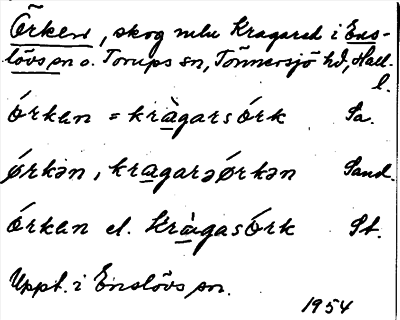 Örken, skog mln Kragared i Ens-
lövs sn o. Torups sn, Tönnersjö hd, Hall.
l.
órkan = kràgarsórk Sa.
órkən, kragarsórkən Sand.
órkan el. kràgasórk St.
Uppt. i Enslövs sn.
1954